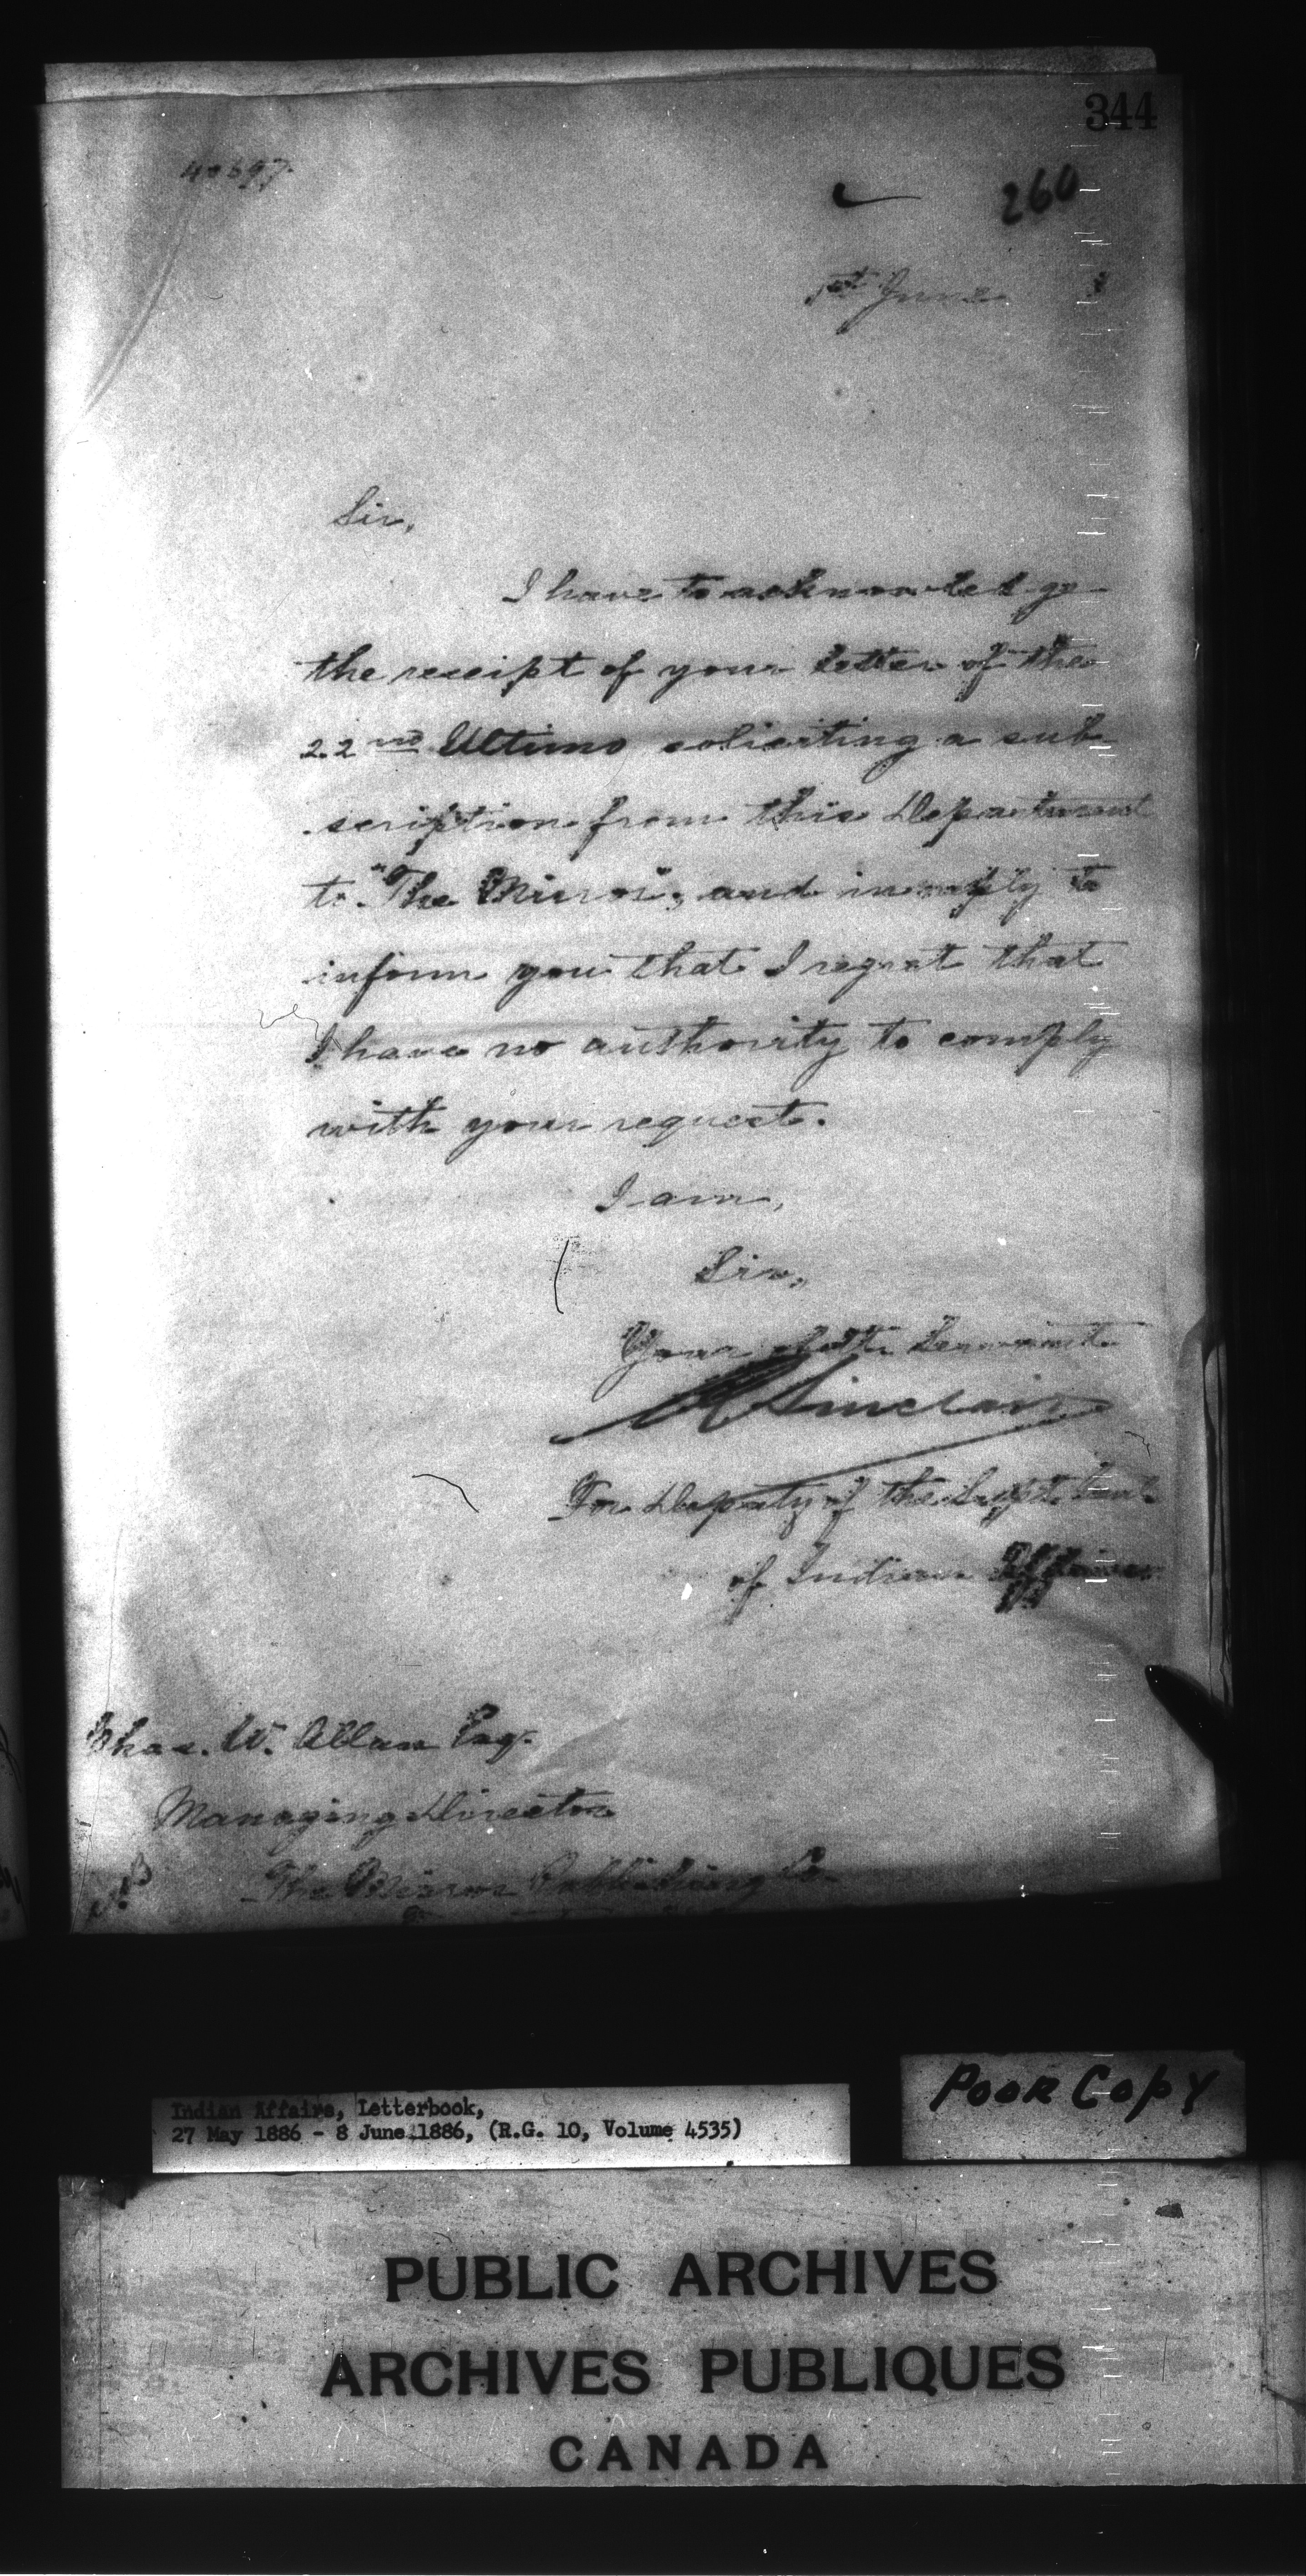 344
260
1st June
Sir,
I have to acknowledge
the receipt of your letter of the
22nd Ultimo soliciting a sub-
scription from this Department
to "The Mirror", and in reply to
inform you that I regret that
I have no authority to comply
with your request.
I am,
Sir,
Your obdt. Servant
Sinclair
For Deputy of the Supt. Genl.
of Indian Affairs
Chas. W. Allan Esq.
Managing Director
The Mirror Publishing Co.
Poor Copy
Indian Affairs, Letterbook,
27 May 1886 - 8 June 1886, (R.G. 10, Volume 4535)
PUBLIC ARCHIVES
ARCHIVES PUBLIQUES
CANADA